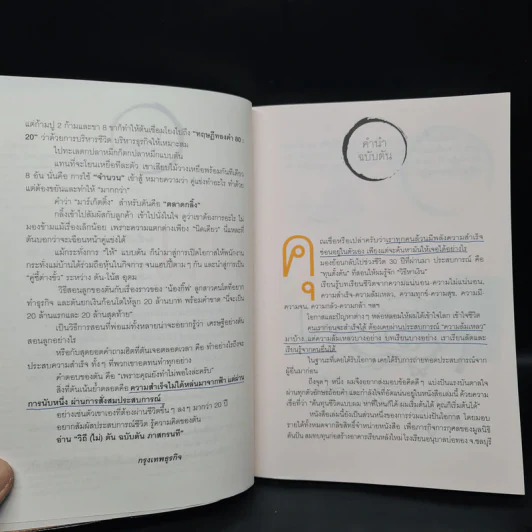 แต่ก้ามปู 2 ก้ามและขา 8 ขาก็ทำให้ตันเชื่อมโยงไปถึง "ทฤษฎีทองคำ 80 :
20" ว่าด้วยการบริหารชีวิต บริหารธุรกิจให้เหมาะสม
ไปทะเลตกปลาหมึกก็ตกปลาหมึกแบบตัน
แทนที่จะโยนเหยื่อทีละตัว เขาเสียบไม้วางเหยื่อพร้อมกันทีเดียว
8 อัน นั่นคือ การใช้ "จำนวน" เข้าสู้ หมายความว่า คู่แข่งทำอะไร ทำด้วย
แต่ต้องขยันและทำให้ "มากกว่า"
คำว่า "มาร์เก็ตติ้ง" สำหรับตันคือ "ตลาดกลิ้ง"
กลิ้งเข้าไปสัมผัสกับลูกค้า เข้าไปนั่งในใจ ดูว่าเขาต้องการอะไร ไม่
มองข้ามแม้เรื่องเล็กน้อย เพราะความแตกต่างเพียง "นิดเดียว" นี่แหละที่
ตันบอกว่าจะเฉือนหน้าคู่แข่งได้
แม้กระทั่งการ "ให้" แบบตัน ก็นำมาสู่การเปิดโอกาสให้พนักงาน
กระทั่งแม่บ้านได้ร่วมถือหุ้นในกิจการ จนแฮปปี้ตาม ๆ กัน และนำสู่การเป็น
"คู่ซี้ต่างขั้ว" ระหว่าง ตัน-โน้ส อุดม
วิธีสอนลูกของตันกับเรื่องราวของ "น้องกิ๊ฟ" ลูกสาวคนโตที่อยาก
ทำธุรกิจ และตันยกเงินก้อนโตให้ลูก 20 ล้านบาท พร้อมคำขาด "นี่จะเป็น
20 ล้านแรกและ 20 ล้านสุดท้าย"
เป็นวิธีการสอนที่พ่อแม่ทั้งหลายน่าจะอยากรู้ว่า เศรษฐีอย่างตัน
สอนลูกอย่างไร
หรือกับสุดยอดคำถามฮิตที่ตันเจอตลอดเวลา คือ ทำอย่างไรถึงจะ
ประสบความสำเร็จ ทั้งๆ ที่พวกเขาอดทนทำทุกอย่าง
คำตอบของตัน คือ "เพราะคุณยังทำไม่พอไงล่ะครับ"
สิ่งที่ตันเน้นย้ำตลอดคือ ความสำเร็จไม่ได้หล่นมาจากฟ้า แต่ผ่าน
การนับหนึ่ง ผ่านการสั่งสมประสบการณ์
อย่างเช่นตัวเขาเองที่ต้องผ่านชีวิตขึ้น ๆ ลง ๆ มากว่า 20 ปี
อยากสัมผัสประสบการณ์ชีวิต รู้ความคิดของตัน
อ่าน "วิถี (ไม่) ตัน ฉบับตัน ภาสกรนที"
กรุงเทพธุรกิจ
คำนำ
ฉบับตัน
คุณเชื่อหรือเปล่าครับว่า เราทุกคนล้วนมีพลังความสำเร็จ
ซ่อนอยู่ในตัวเอง เพียงแต่จะค้นหามันให้เจอได้อย่างไร
มองย้อนกลับไปช่วงชีวิต 30 ปีที่ผ่านมา ประสบการณ์ คือ
"ทุนตั้งต้น" ที่สอนให้ผมรู้จัก "วิธีหาเงิน"
เรียนรู้บทเรียนชีวิตจากความแน่นอน-ความไม่แน่นอน,
ความสำเร็จ-ความล้มเหลว, ความทุกข์-ความสุข, ความมี-
ความจน, ความกลัว-ความกล้า ฯลฯ
โอกาสและปัญหาต่างๆ หล่อหลอมให้ผมได้เข้าใจโลก เข้าใจชีวิต
คนเราก่อนจะสำเร็จได้ ต้องเคยผ่านประสบการณ์ "ความล้มเหลว"
มาบ้าง แต่ความล้มเหลวบางอย่าง บทเรียนบางอย่าง เราเรียนลัดและ
เรียนรู้จากคนอื่นได้
ในฐานะที่เคยได้รับโอกาส เคยได้รับการถ่ายทอดประสบการณ์จาก
ผู้อื่นมาก่อน
ถึงจุด ๆ หนึ่ง ผมจึงอยากส่งมอบข้อคิดดี ๆ แบ่งปันแรงบันดาลใจ
ผ่านทุกตัวอักษรร้อยคำ และกำลังใจที่อัดแน่นอยู่ในหนังสือเล่มนี้ ด้วยความ
เชื่อที่ว่า "ต้นทุนชีวิตแบบผม หาที่ไหนก็ได้ ผมเริ่มต้นได้ คุณก็เริ่มต้นได้"
หนังสือเล่มนี้ยังเป็นส่วนหนึ่งของการร่วมแบ่งปันโอกาส โดยมอบ
รายได้ทั้งหมดจากลิขสิทธิ์จำหน่ายหนังสือ เพื่อภารกิจการกุศลของมูลนิธิ
ตันปัน สมทบทุนก่อสร้างอาคารเรียนหลังใหม่ โรงเรียนอนุบาลบ่อทอง จ.ชลบุรี